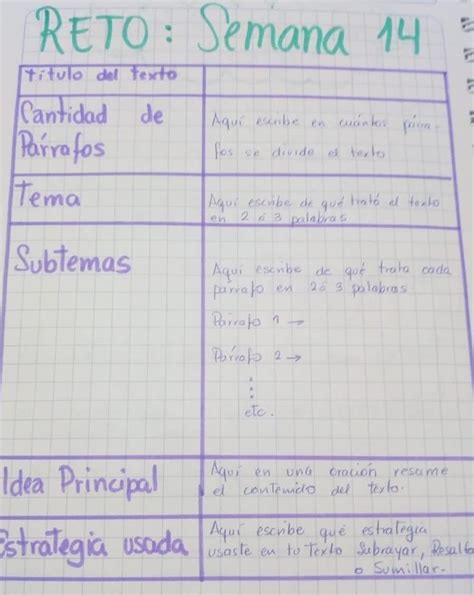 RETO: Semana 14
título del texto
Cantidad de
Párrafos
Aquí escribe en cuántos párra-
fos se divide el texto
Tema
Aquí escribe de qué trató el texto
en 2 ó 3 palabras
Subtemas
Aquí escribe de qué trata cada
párrafo en 2 ó 3 palabras
Párrafo 1 →
Párrafo 2 →
etc.
Idea Principal
Aquí en una oración resume
el contenido del texto.
Estrategia usada
Aquí escribe qué estrategia
usaste en tu Texto Subrayar, Resalta
o Sumillar.